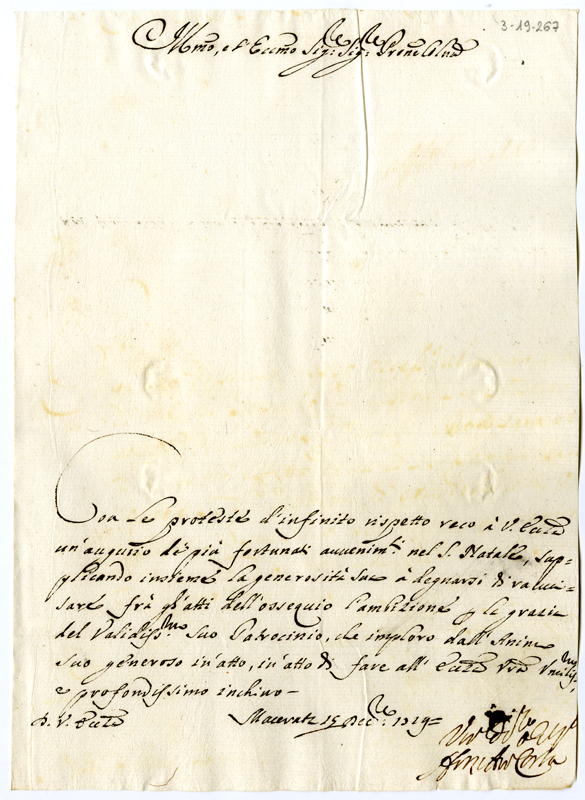 3-19-267
Illmo, e S.r Eccmo Sig.re Sig.re Prone Colmo
Con le proteste d'infinito rispetto reco à V. Eccza
un'augurio de più fortunati avvenim.ti nel S. Natale, sup=
plicando insieme la generosità sua à degnarsi di ravvi=
sare frà gl'atti dell'ossequio l'ambizione p la grazia
del Validiss.mo Suo Padrocinio, che imploro dall'Animo
Suo generoso in'atto, in'atto di fare all' Eccza Vra Umiliss.mo
e profondissimo inchino=
D. V. Eccza Macerata 15 Dec.re